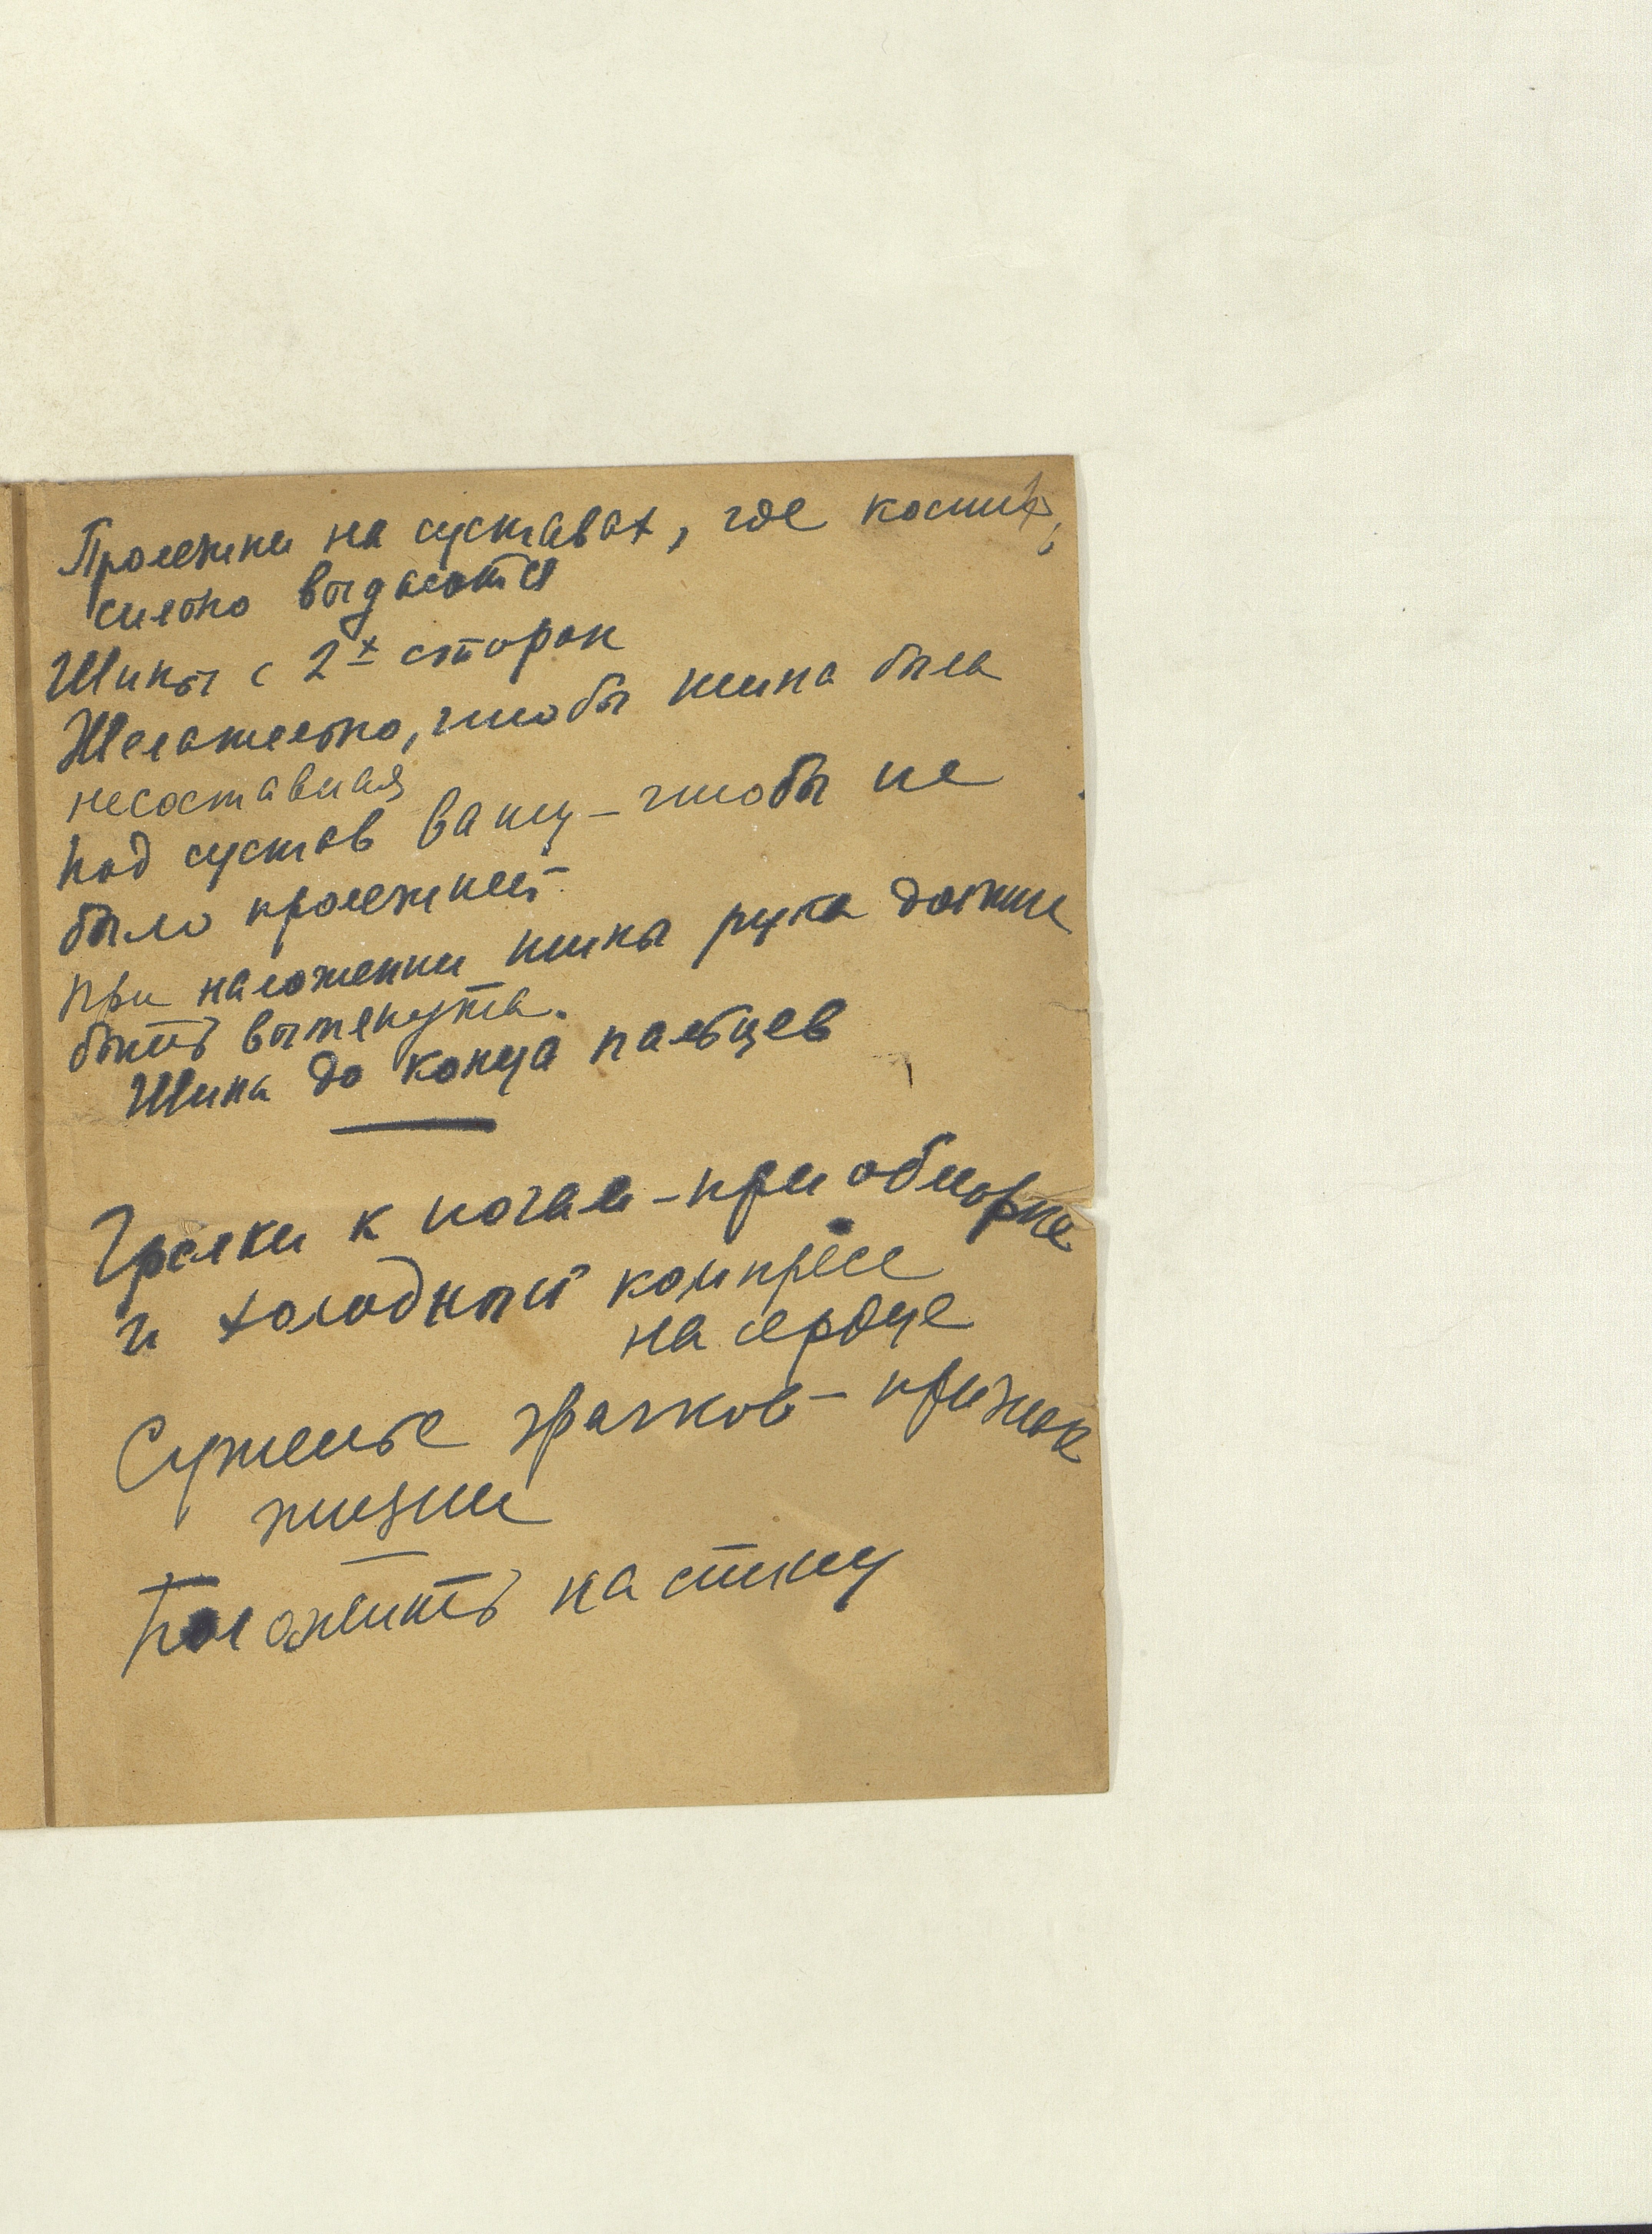 Пролежни на суставах, где кости
сильно выдаются
Шины с 2х сторон
Желательно, чтобы шина была
несоставная
Под сустав вату – чтобы не
было пролежней
При наложении шины рука должна
быть вытянута.
Шина до конца пальцев
Грелки к ногам – при обмороке
и холодный компресс
на сердце
Суженье зрачков – признак
жизни
Положить на спину